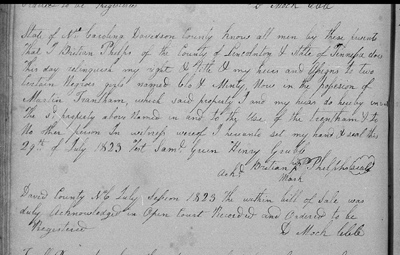 D Mock Clk
State of No Carolina Davidson County Knows all men by these presents
That I Bristian Phelps of the County of Lincolnton & State of Tennessee does
this day relinquish my right & title & my heirs and assigns to two
Certain Negroe girls named Clo & Minty Now in the possession of
Martin Frantham, which said property I and my heirs do hereby
The Sd property above Named in and to the Use of the Sd Frantham & to
No other person In witness whereof I hereunto set my hand & seal this
29th of July 1823 Test Saml Green Henry Grubb
Bristian Phelps (seal)
Mark
David County NC July Session 1823 The within bill of Sale was
duly Acknowledged in Open Court Recorded and Ordered to be
Registered
D Mock Clk